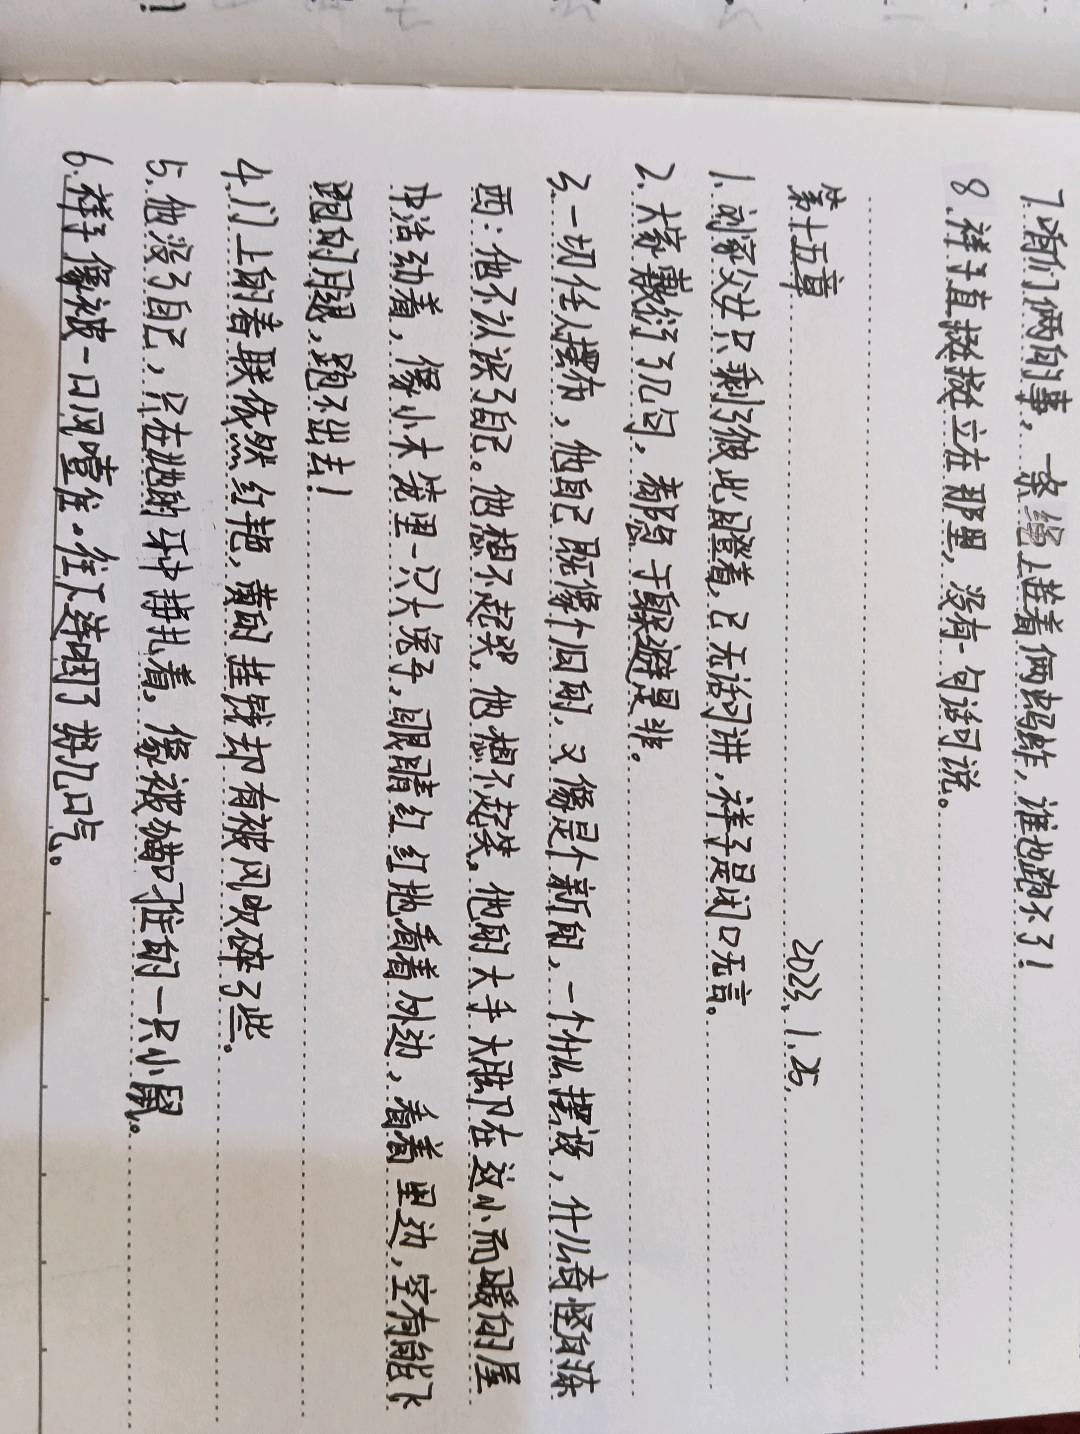 7.咱们俩的事,一条绳上拴着俩蚂蚱,谁也跑不了!
8.祥子直挺挺立在那里,没有一句话可说。
第十五章 2023.1.25.
1.刘家父女只剩了彼此瞪着,已无话可讲,祥子是闭口无言。
2.大家敷衍了几句,都忽于躲避是非。
3.一切任人摆布,他自己既像个旧的,又像是个新的,一个什么摆设,什么奇怪的东
西:他不认识了自己。他想不起哭,他想不起笑,他的大手大脚在这小而暖的屋
中活动着,像小木笼里一只大兔子,眼睛红红地看着外边,看着里边,空有能飞
跑的腿,跑不出去!
4.门上的春联依然红艳,黄的挂钱却有被风吹碎了些。
5.他没了自己,只在她的牙中挣扎着,像被猫叼住的一只小鼠。
6.祥子像被一口风噎住,往下连咽了好几口气。